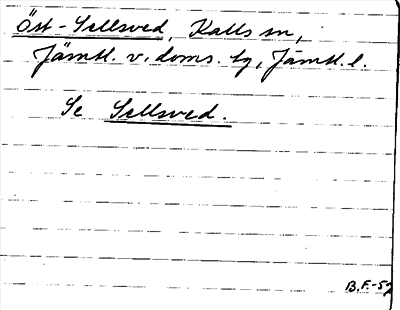 Öst-Sellsved, Kalls sn,
Jämtl. v. doms. tg, Jämtl. l.
Se Sellsved.
B.F.-52